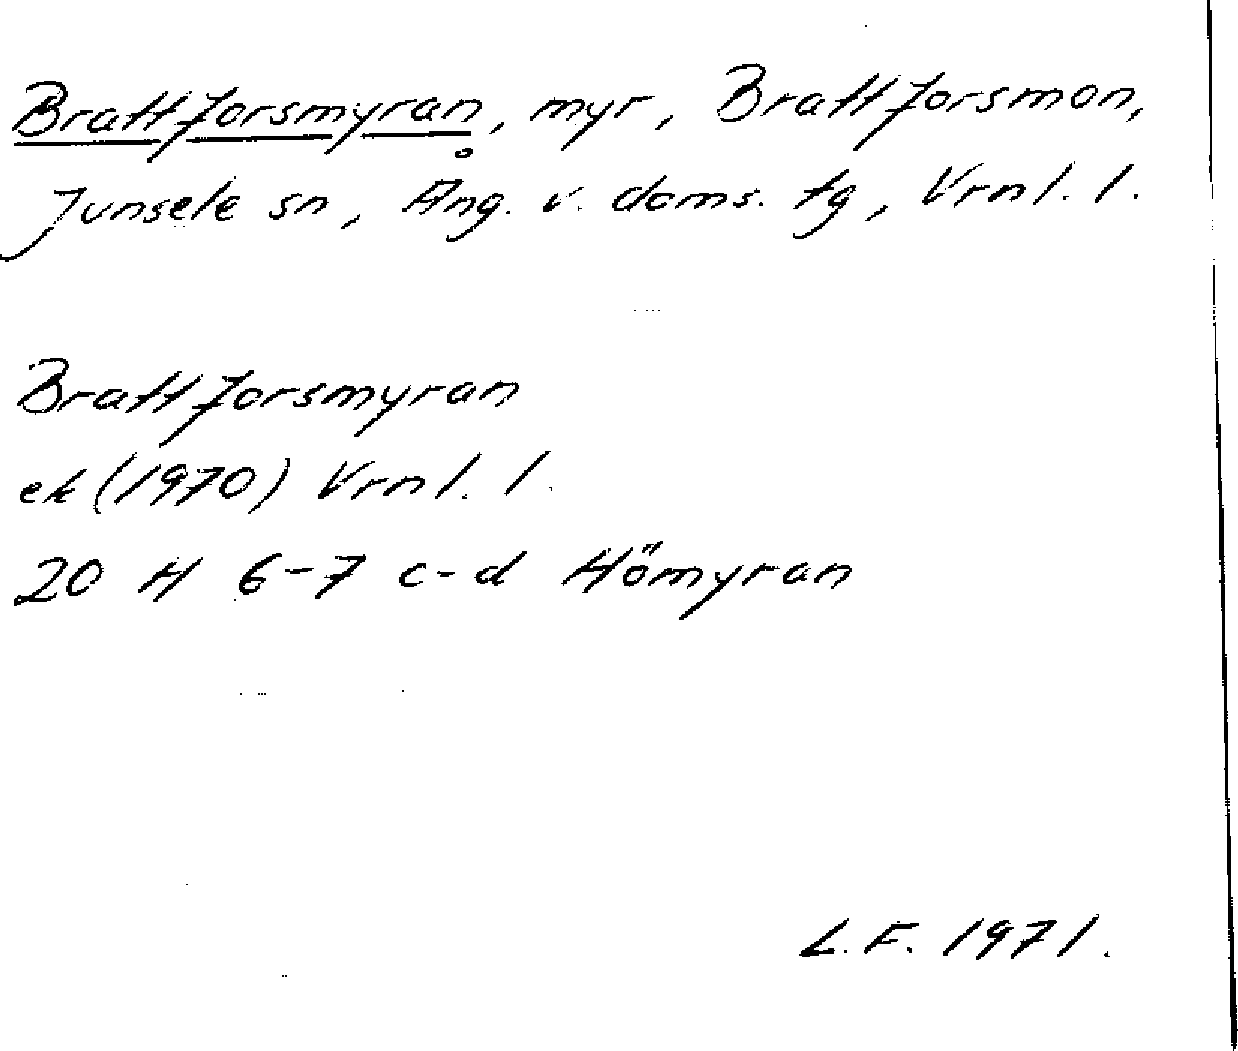 Brattforsmyran, myr, Brattforsmon,
Junsele sn, Ång. v. doms. tg, Vrnl. l.
Brattforsmyran
ek (1970) Vrnl. l.
20 H 6-7 c-d Hömyran
L.F. 1971.